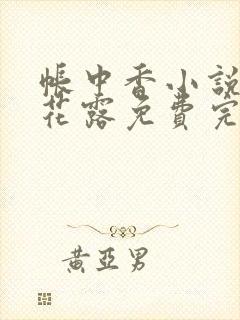 帳中香小說
花露免費完
黃亞男